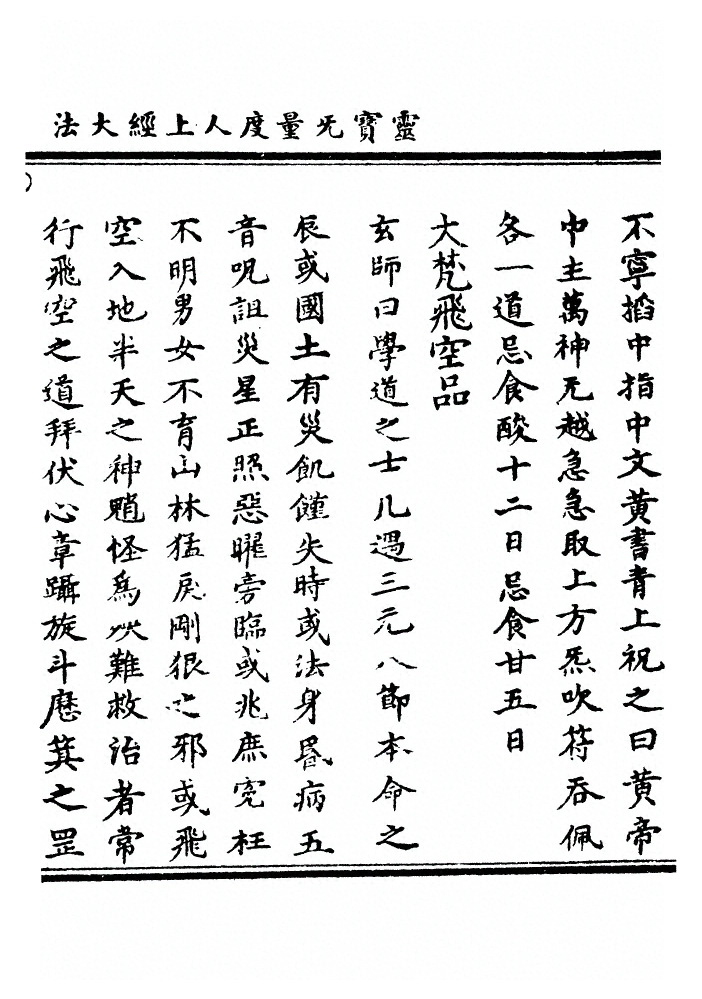 靈寶旡量度人上經大法
不寧搯中指中文黃書青上祝之曰黃帝
中主萬神无越急急取上方炁吹符吞佩
各一道忌食酸十二日忌食甘五日
大梵飛空品
玄師曰學道之士凡遇三元八節本命之
辰或國土有災飢饉失時或法身屬病五
音呪詛災星正照惡曜旁臨或兆庶寃枉
不明男女不育山林猛戾剛狠之邪或飛
空入地半天之神魈怪為災難救治者常
行飛空之道拜伏心章躡旋斗歷箕之罡